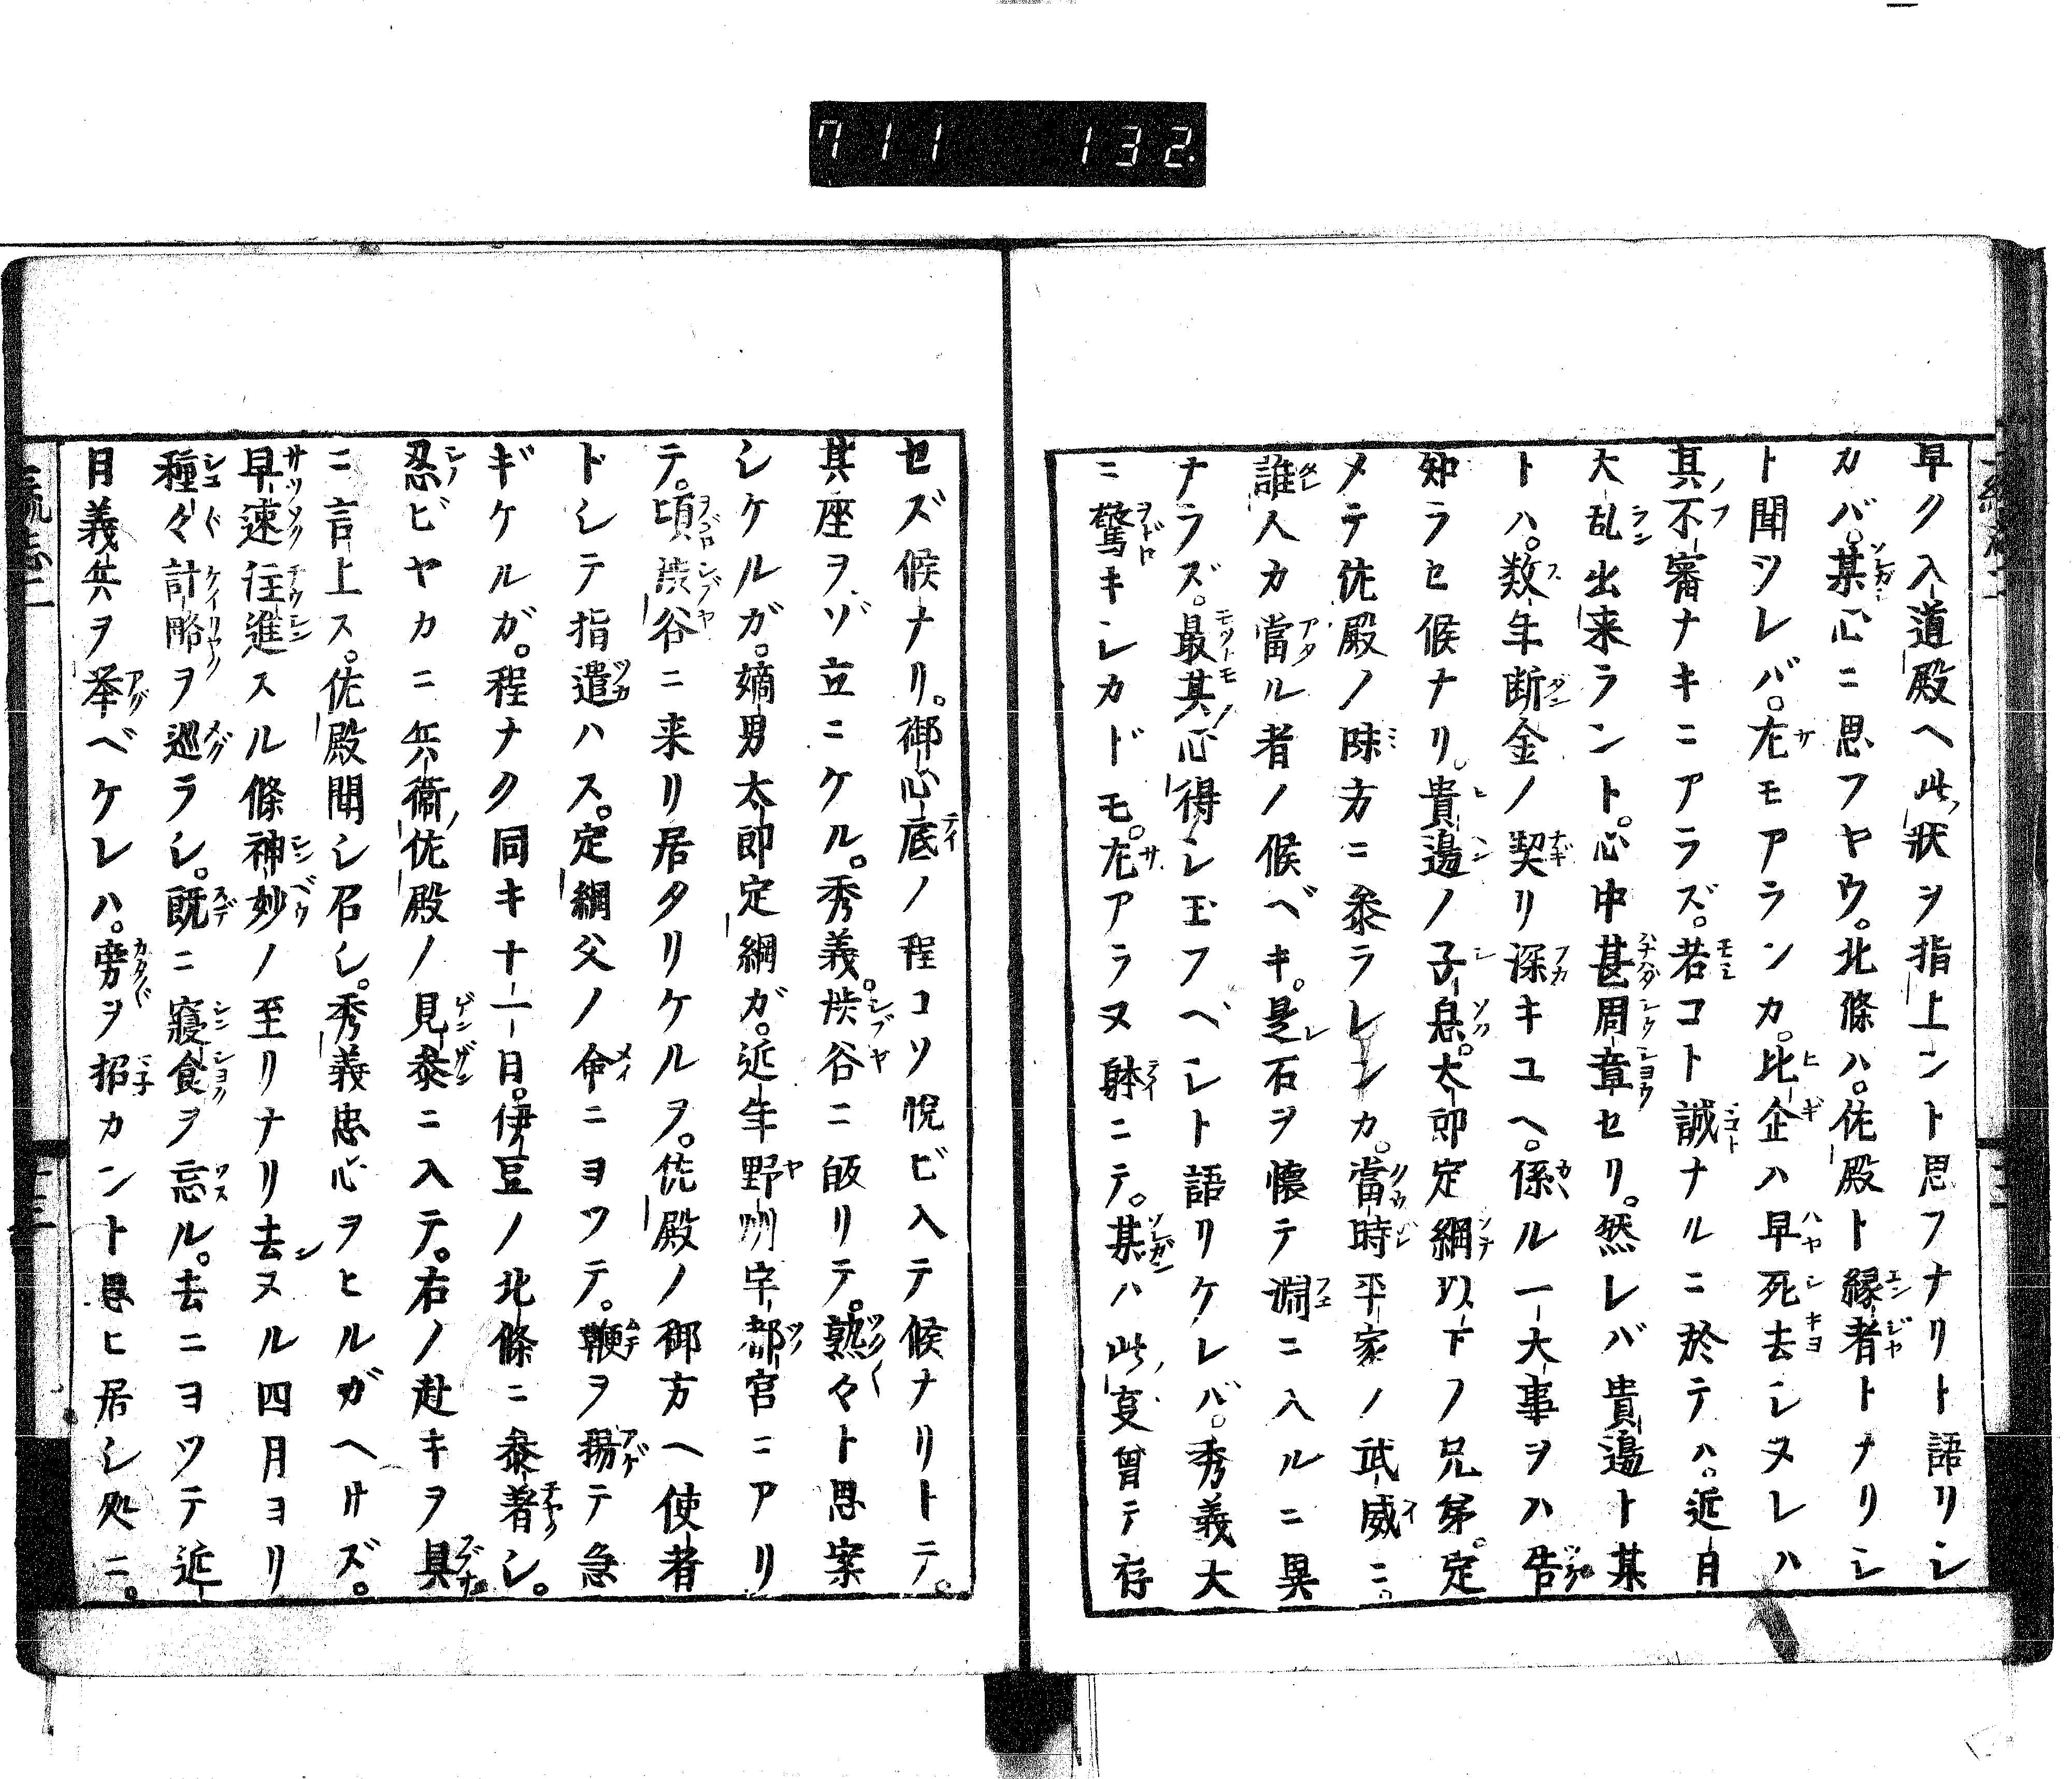 711 132.
早ク入道殿ヘ此状ヲ指上ント思フナリト語リシ
カバ。某心ニ思フヤウ。北條ハ。佐殿ト縁者トナリシ
ト聞ツレバ。左モアランカ。比企ハ早死去シヌレハ
其不審ナキニアラズ。若コト誠ナルニ於テハ。近日
大乱出来ラント。心中甚周章セリ。然レバ貴邊ト某
トハ。数年断金ノ契リ深キユヘ。係ル一大事ヲハ告
知ラセ候ナリ。貴邊ノ子息。太郎定綱以下ノ兄弟。定
メテ佐殿ノ味方ニ参ラレンカ。當時平家ノ武威ニ。
誰人カ當ル者ノ候ベキ。是石ヲ懐テ淵ニ入ルニ異
ナラズ。最其心得シ玉フベシト語リケレバ。秀義大
ニ驚キシカドモ。左アラヌ躰ニテ。某ハ此𠮟曽テ存
セズ候ナリ。御心底ノ程コソ悦ビ入テ候ナリトテ。
其座ヲゾ立ニケル。秀義。渋谷ニ皈リテ。熟々ト思案
シケルガ。嫡男太郎定綱ガ。近年野州宇都宮ニアリ
テ。頃渋谷ニ来リ居タリケルヲ。佐殿ノ御方ヘ使者
トシテ指遣ハス。定綱父ノ命ニヨツテ。鞭ヲ揚テ急
ギケルガ。程ナク同キ十一日。伊豆ノ北條ニ参着シ。
忍ビヤカニ兵衛佐殿ノ見参ニ入テ。右ノ赴キヲ具
ニ言上ス。佐殿聞シ召シ。秀義忠心ヲヒルガヘサズ。
早速注進スル條神妙ノ至リナリ去ヌル四月ヨリ
種々計略ヲ巡ラシ。既ニ寢食ヲ忘ル。去ニヨツテ近
日義兵ヲ挙ベケレハ。旁ヲ招カント思ヒ居シ処ニ。